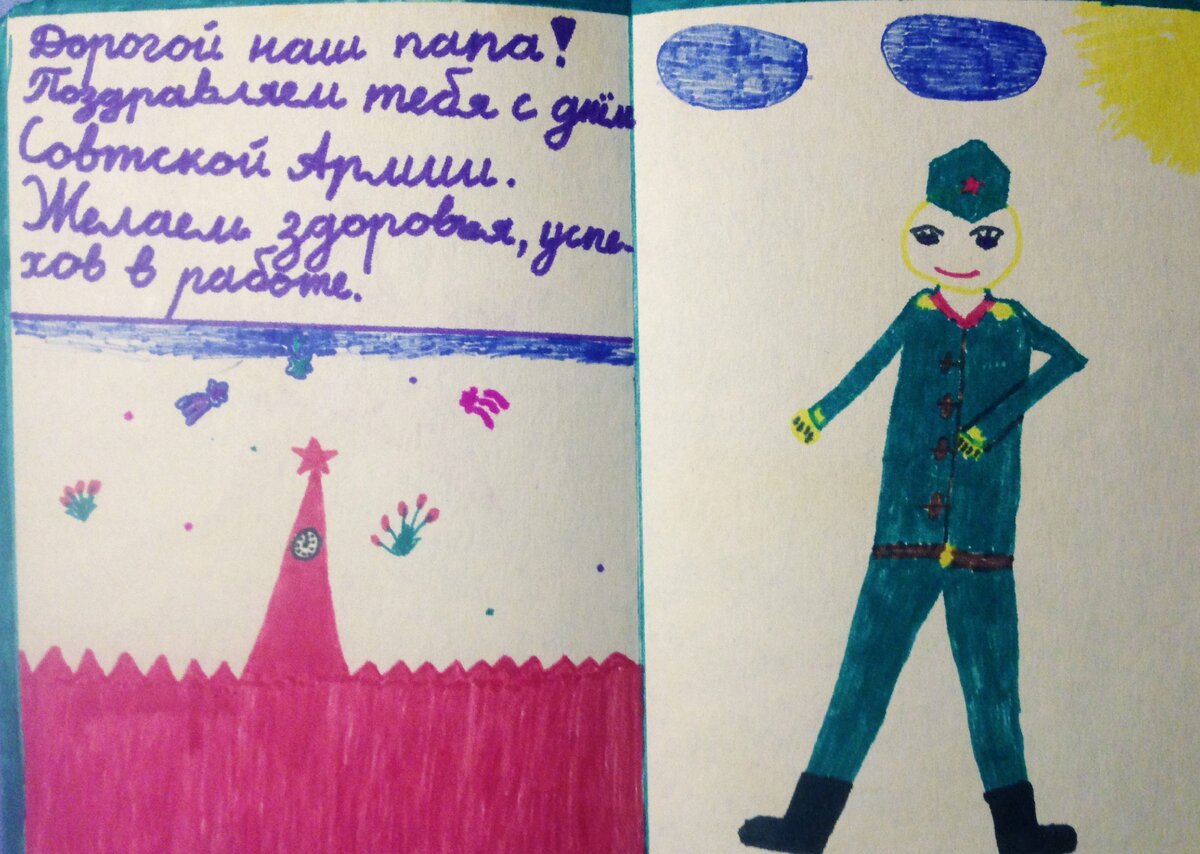 Дорогой наш папа!
Поздравляем тебя с днём
Совтской Армии.
Желаем здоровья, успе-
хов в работе.